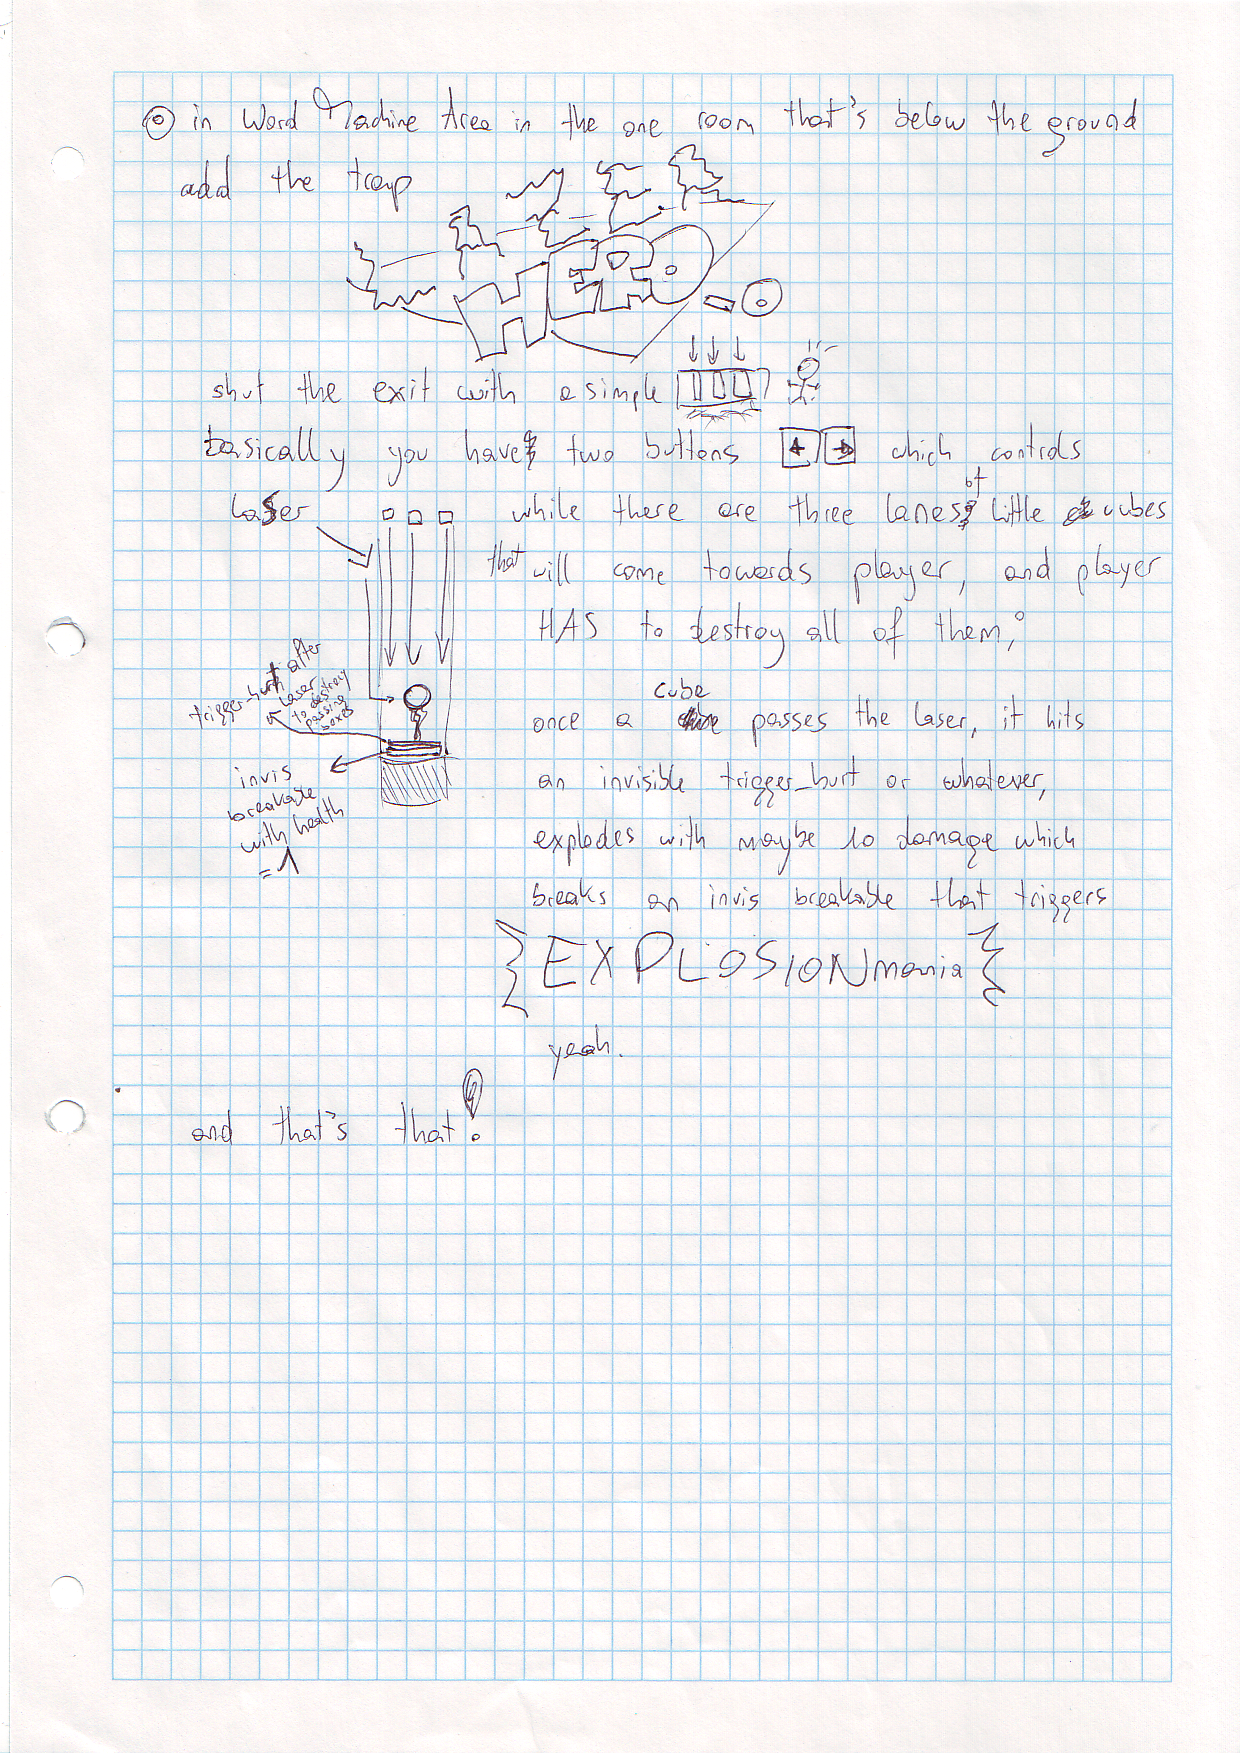 in Word Machine Area in the one room that's below the ground
add the trap
HERO
shut the exit with a simple
basically you have two buttons ← → which controls
laser
while there are three lanes of little cubes
that will come towards player, and player
HAS to destroy all of them,
trigger_hurt after
laser
to destroy
passing
boxes
once a cube passes the laser, it hits
invis
breakable
with health
= 1
an invisible trigger_hurt or whatever,
explodes with maybe 10 damage which
breaks an invis breakable that triggers
{EXPLOSIONmania}
yeah.
and that's that!